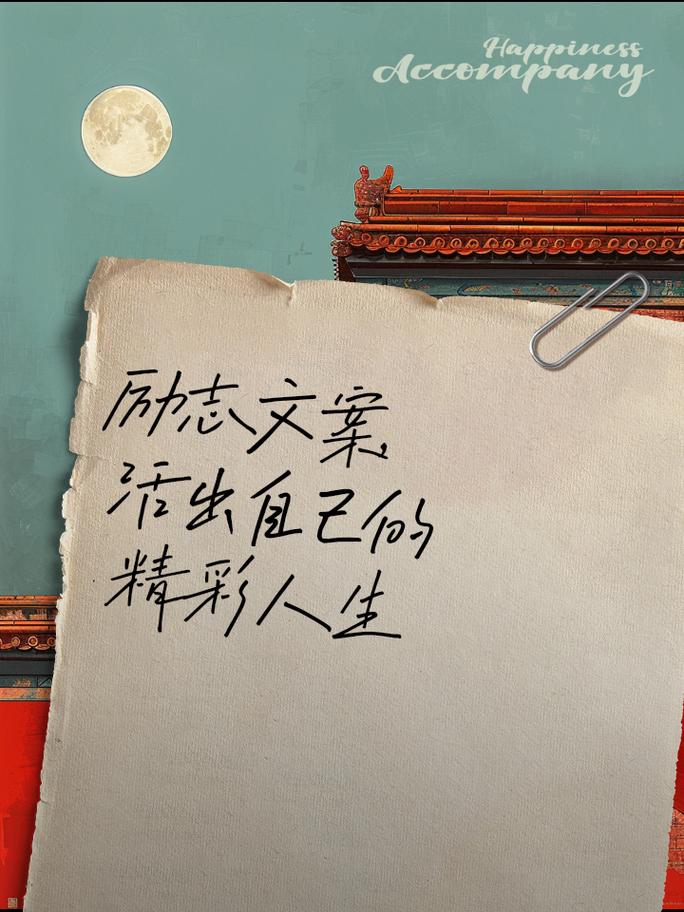 Happiness
Accompany
励志文案
活出自己的
精彩人生